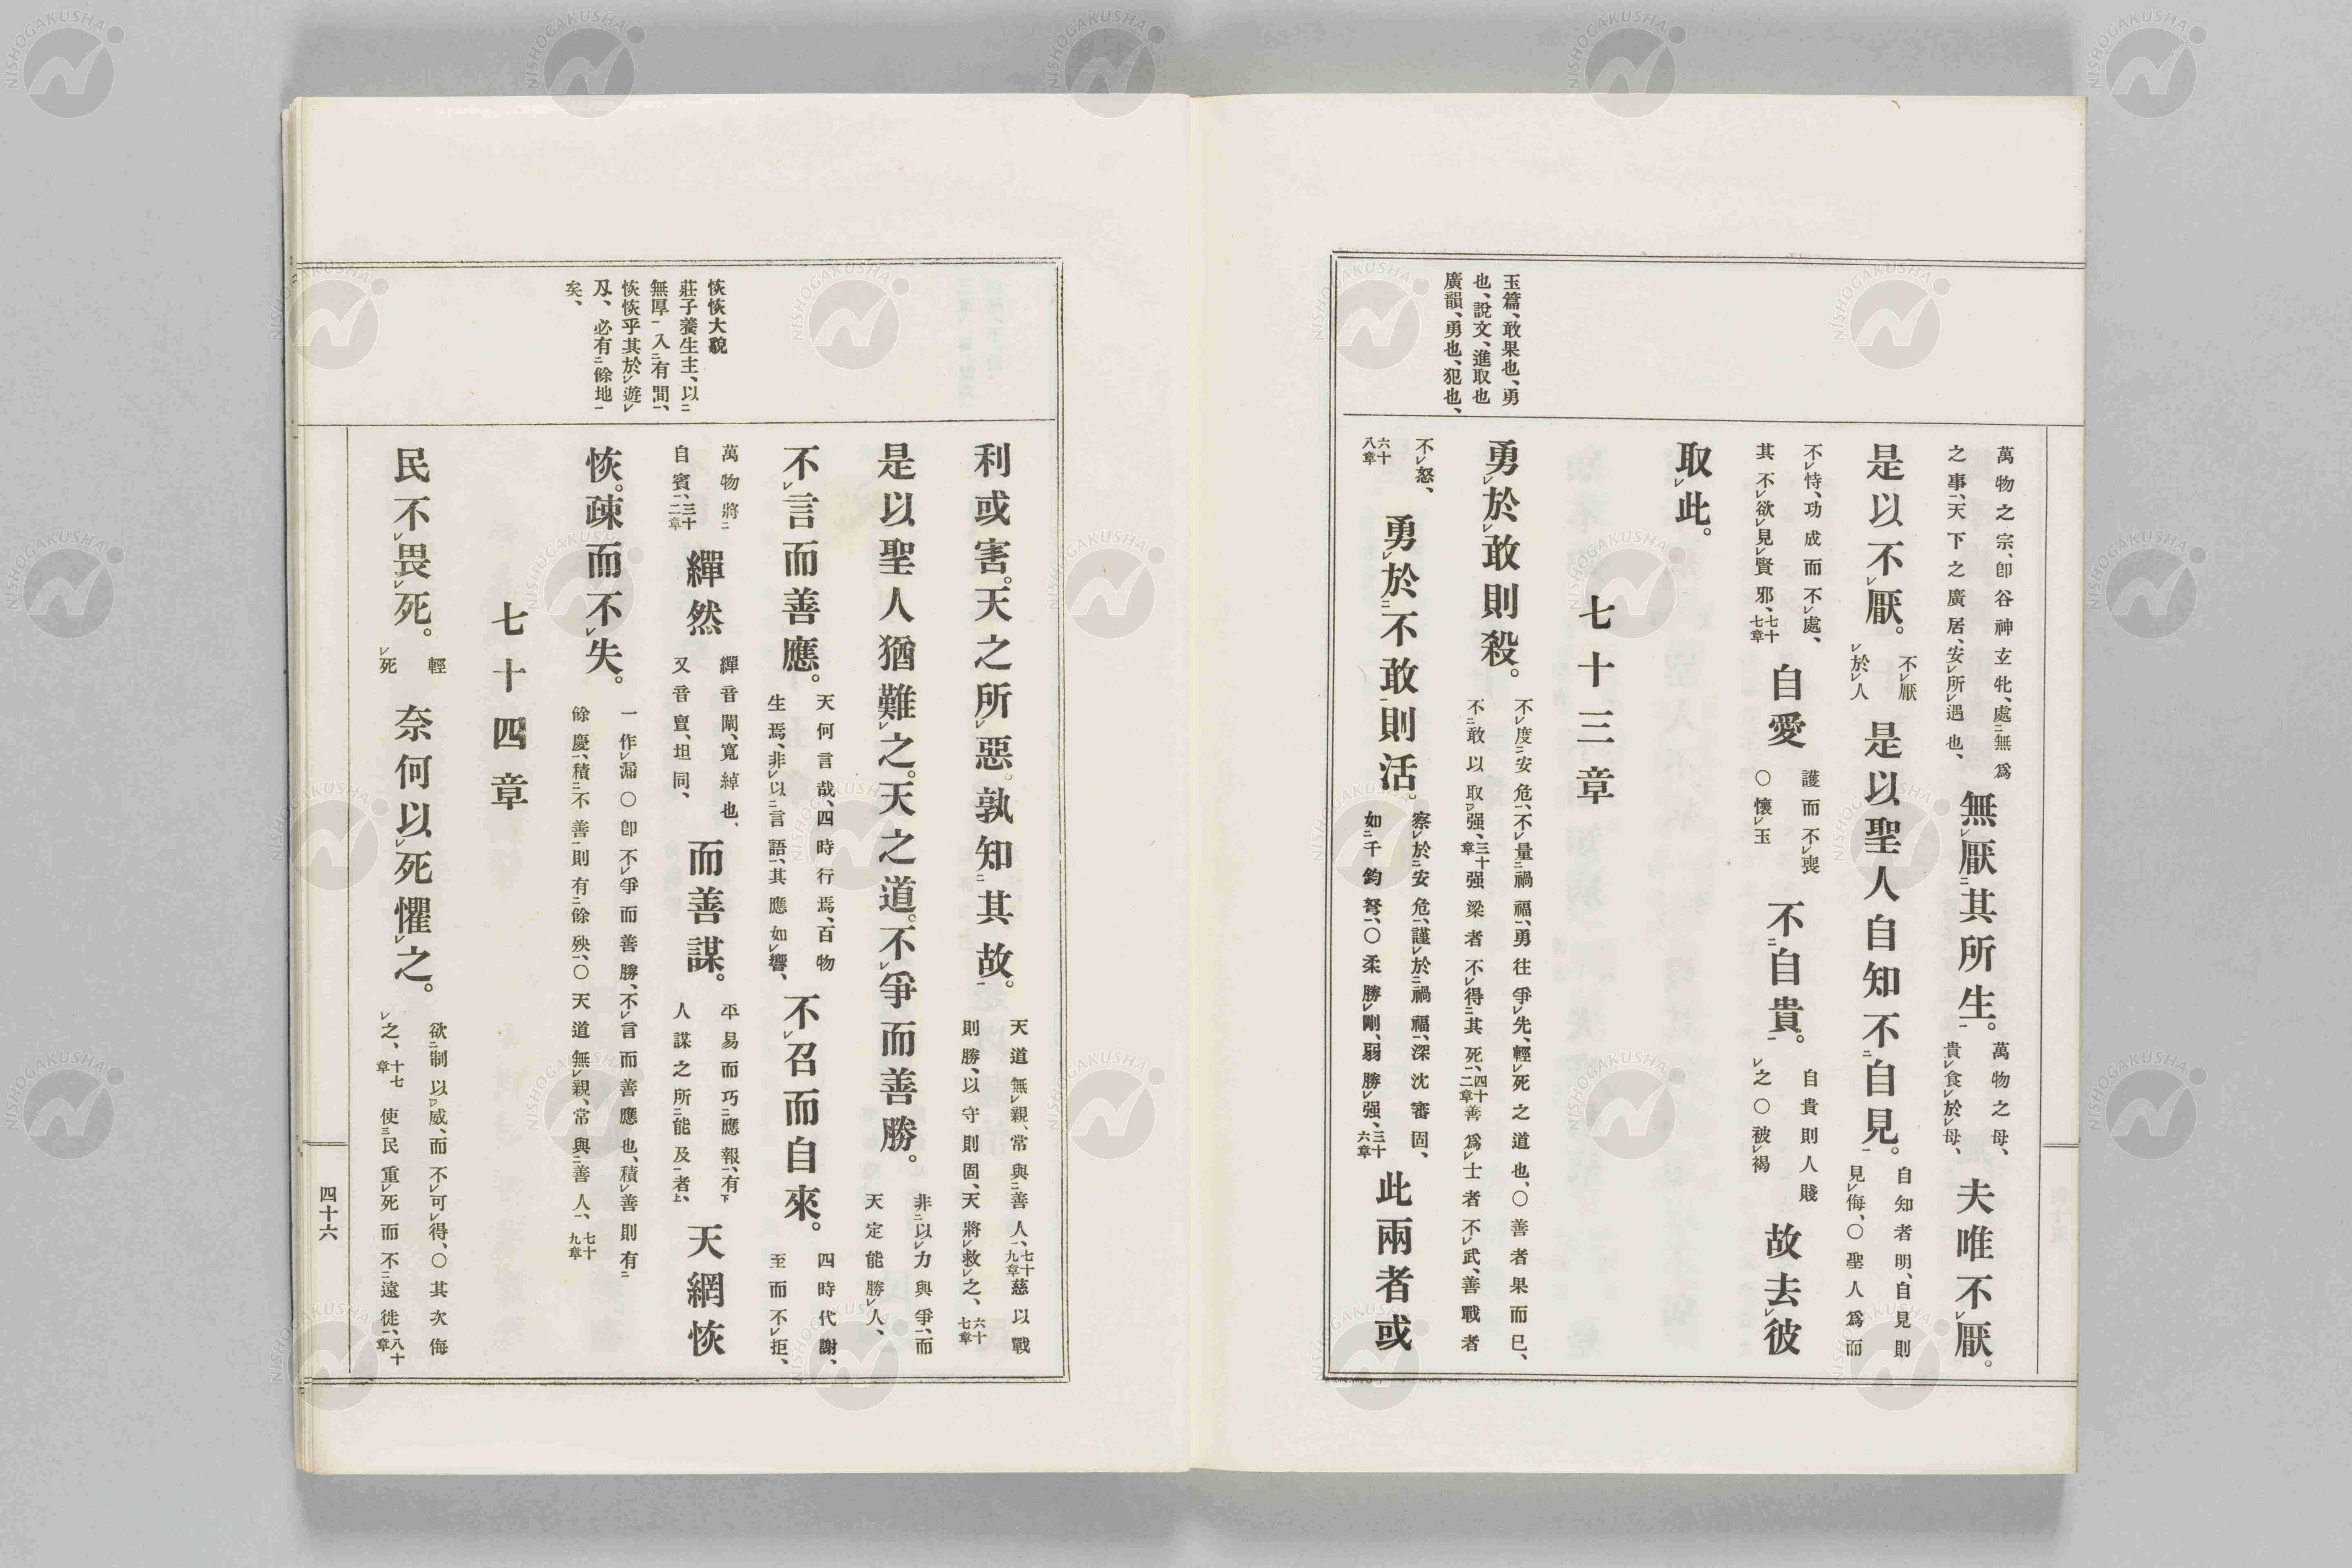 玉篇、敢果也、勇
也、說文、進取也
廣韻、勇也、犯也、
萬物之宗、卽谷神玄牝、處無爲
之事、天下之廣居、安所遇也、
無厭其所生。
萬物之母、
貴食於母、
夫唯不厭。
是以不厭。
不厭
於人
是以聖人自知不自見。
自知者明、自見則
見侮、〇聖人爲而
不恃、功成而不處、
其不欲見賢邪、七十七章
自愛
護而不喪
〇懷玉
不自貴。
自貴則人賤
之〇被褐
故去彼
取此。
七十三章
勇於敢則殺。
不度安危、不量禍福、勇往爭先、輕死之道也、〇善者果而已、
不敢以取强、三十章强梁者不得其死、四十二章善爲士者不武、善戰者
不怒、
六十八章
勇於不敢則活。
察於安危、謹於禍福、深沈審固、
如千鈞弩、〇柔勝剛、弱勝强、三十六章
此兩者或
恢恢大貌
莊子養生主、以
無厚入有間、
恢恢乎其於遊
刄、必有餘地
矣、
利或害。天之所惡。孰知其故。
天道無親、常與善人、七十九章慈以戰
則勝、以守則固、天將救之、六十七章
是以聖人猶難之。天之道。不爭而善勝。
非以力與爭、而
天定能勝人、
不言而善應。
天何言哉、四時行焉、百物
生焉、非以言語、其應如響、
不召而自來。
四時代謝、
至而不拒、
萬物將
自賓、三十二章
繟然
繟音闡、寬綽也、
又音亶、坦同、
而善謀。
平易而巧應報、有
人謀之所能及者、
天網恢
恢。疎而不失。
一作漏〇卽不爭而善勝、不言而善應也、積善則有
餘慶、積不善則有餘殃、〇天道無親、常與善人、七十九章
七十四章
民不畏死。
輕
死
奈何以死懼之。
欲制以威、而不可得、〇其次侮
之、十七章使民重死而不遠徙、八十章
四十六